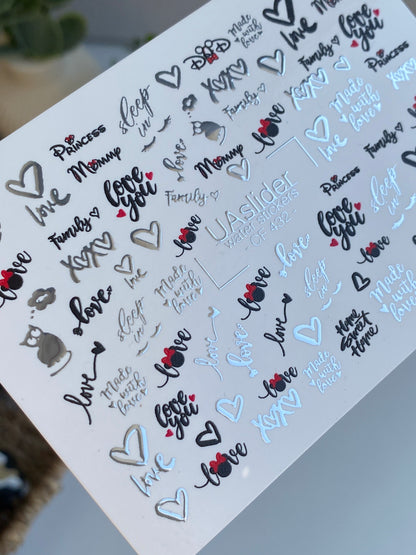 DAD
Made
with
love
love
sleep
in
XOXO
Family
love
YOU
Princess
Mommy
love
YOU
love
Mommy
Family
love
XOXO
Made
with
love
Princess
love
Family
XOXO
love
Family
love
UAslider
water stickers
- CF 432 -
Princess
love
YOU
Princess
Family
love
love
love
sleep
in
Made
with
love
love
love
sleep
in
Made
with
love
love
sleep
in
love
Made
with
love
love
love
love
Home
Sweet
Home
Made
with
love
love
YOU
love
XOXO
Made
with
love
love
love